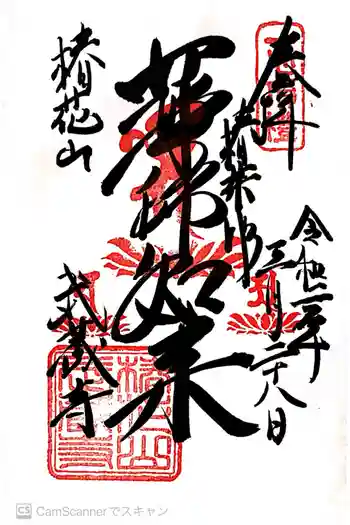 奉拝
令和二年
三月二十八日
薬師如来
椿花山
武蔵寺
CS CamScannerでスキャン